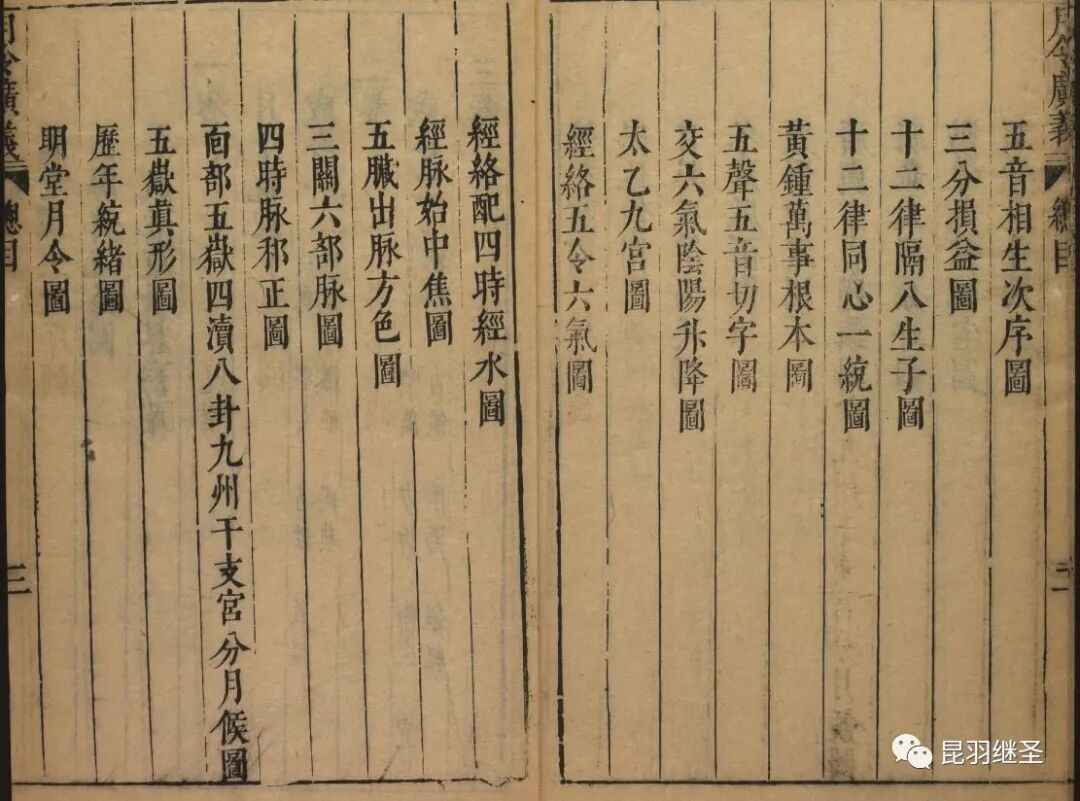 月令廣義
總目
二
五音相生次序圖
三分損益圖
十二律隔八生子圖
十二律同心一統圖
黃鍾萬事根本圖
五聲五音切字圖
交六氣陰陽升降圖
太乙九宮圖
經絡五令六氣圖
經絡配四時經水圖
經脉始中焦圖
五臟出脉方色圖
三關六部脉圖
四時脉邪正圖
面部五嶽四瀆八卦九州干支宮分月候圖
五嶽眞形圖
歷年統緒圖
明堂月令圖
月令廣義
總目
三
昆羽继圣